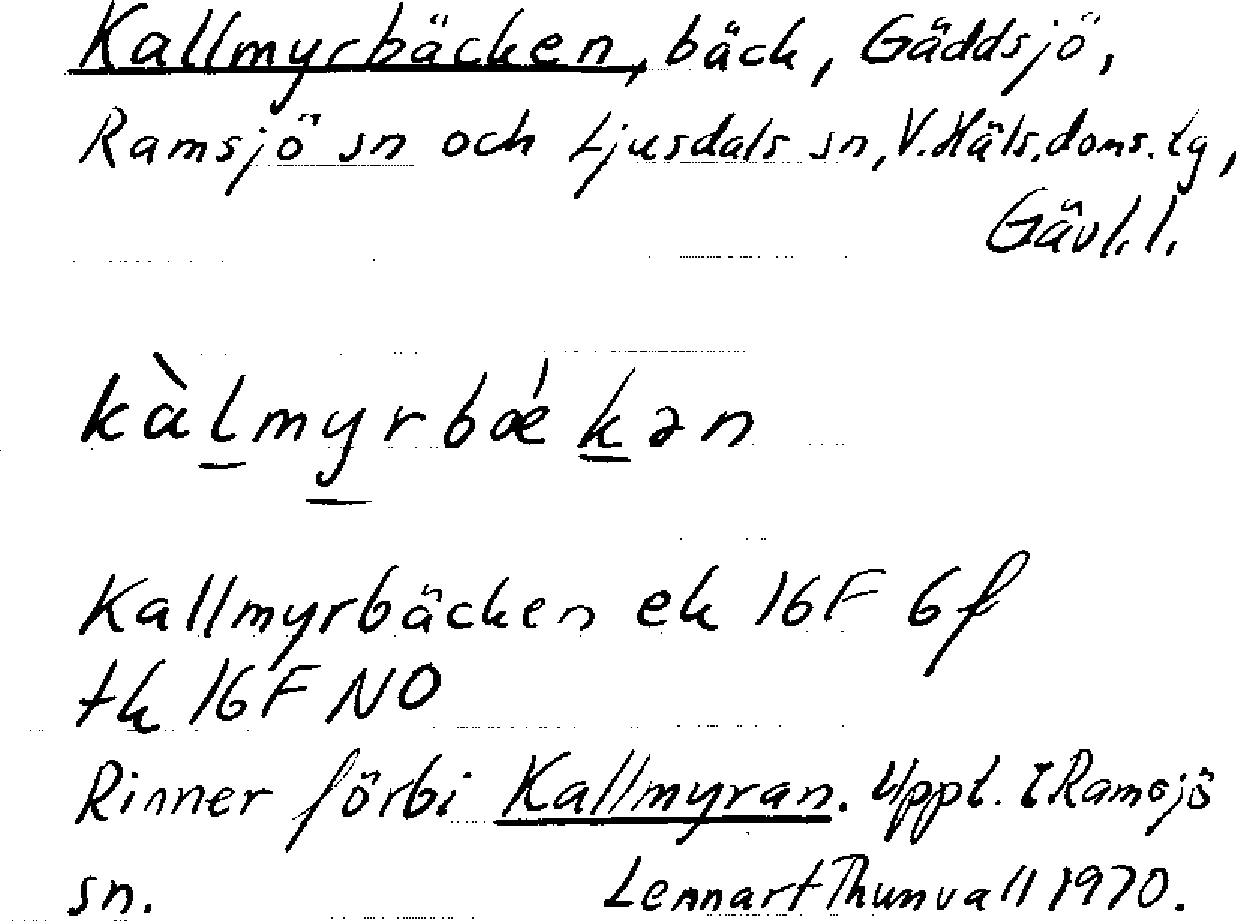 Kallmyrbäcken, bäck, Gäddsjö,
Ramsjö sn och Ljusdals sn, V. Häls. doms. tg,
Gävl. l.
kàlmyrbǽkən
Kallmyrbäcken ek 16F 6f
tk 16F NO
Rinner förbi Kallmyran. Uppt. i Ramsjö
sn. Lennart Thunvall 1970.